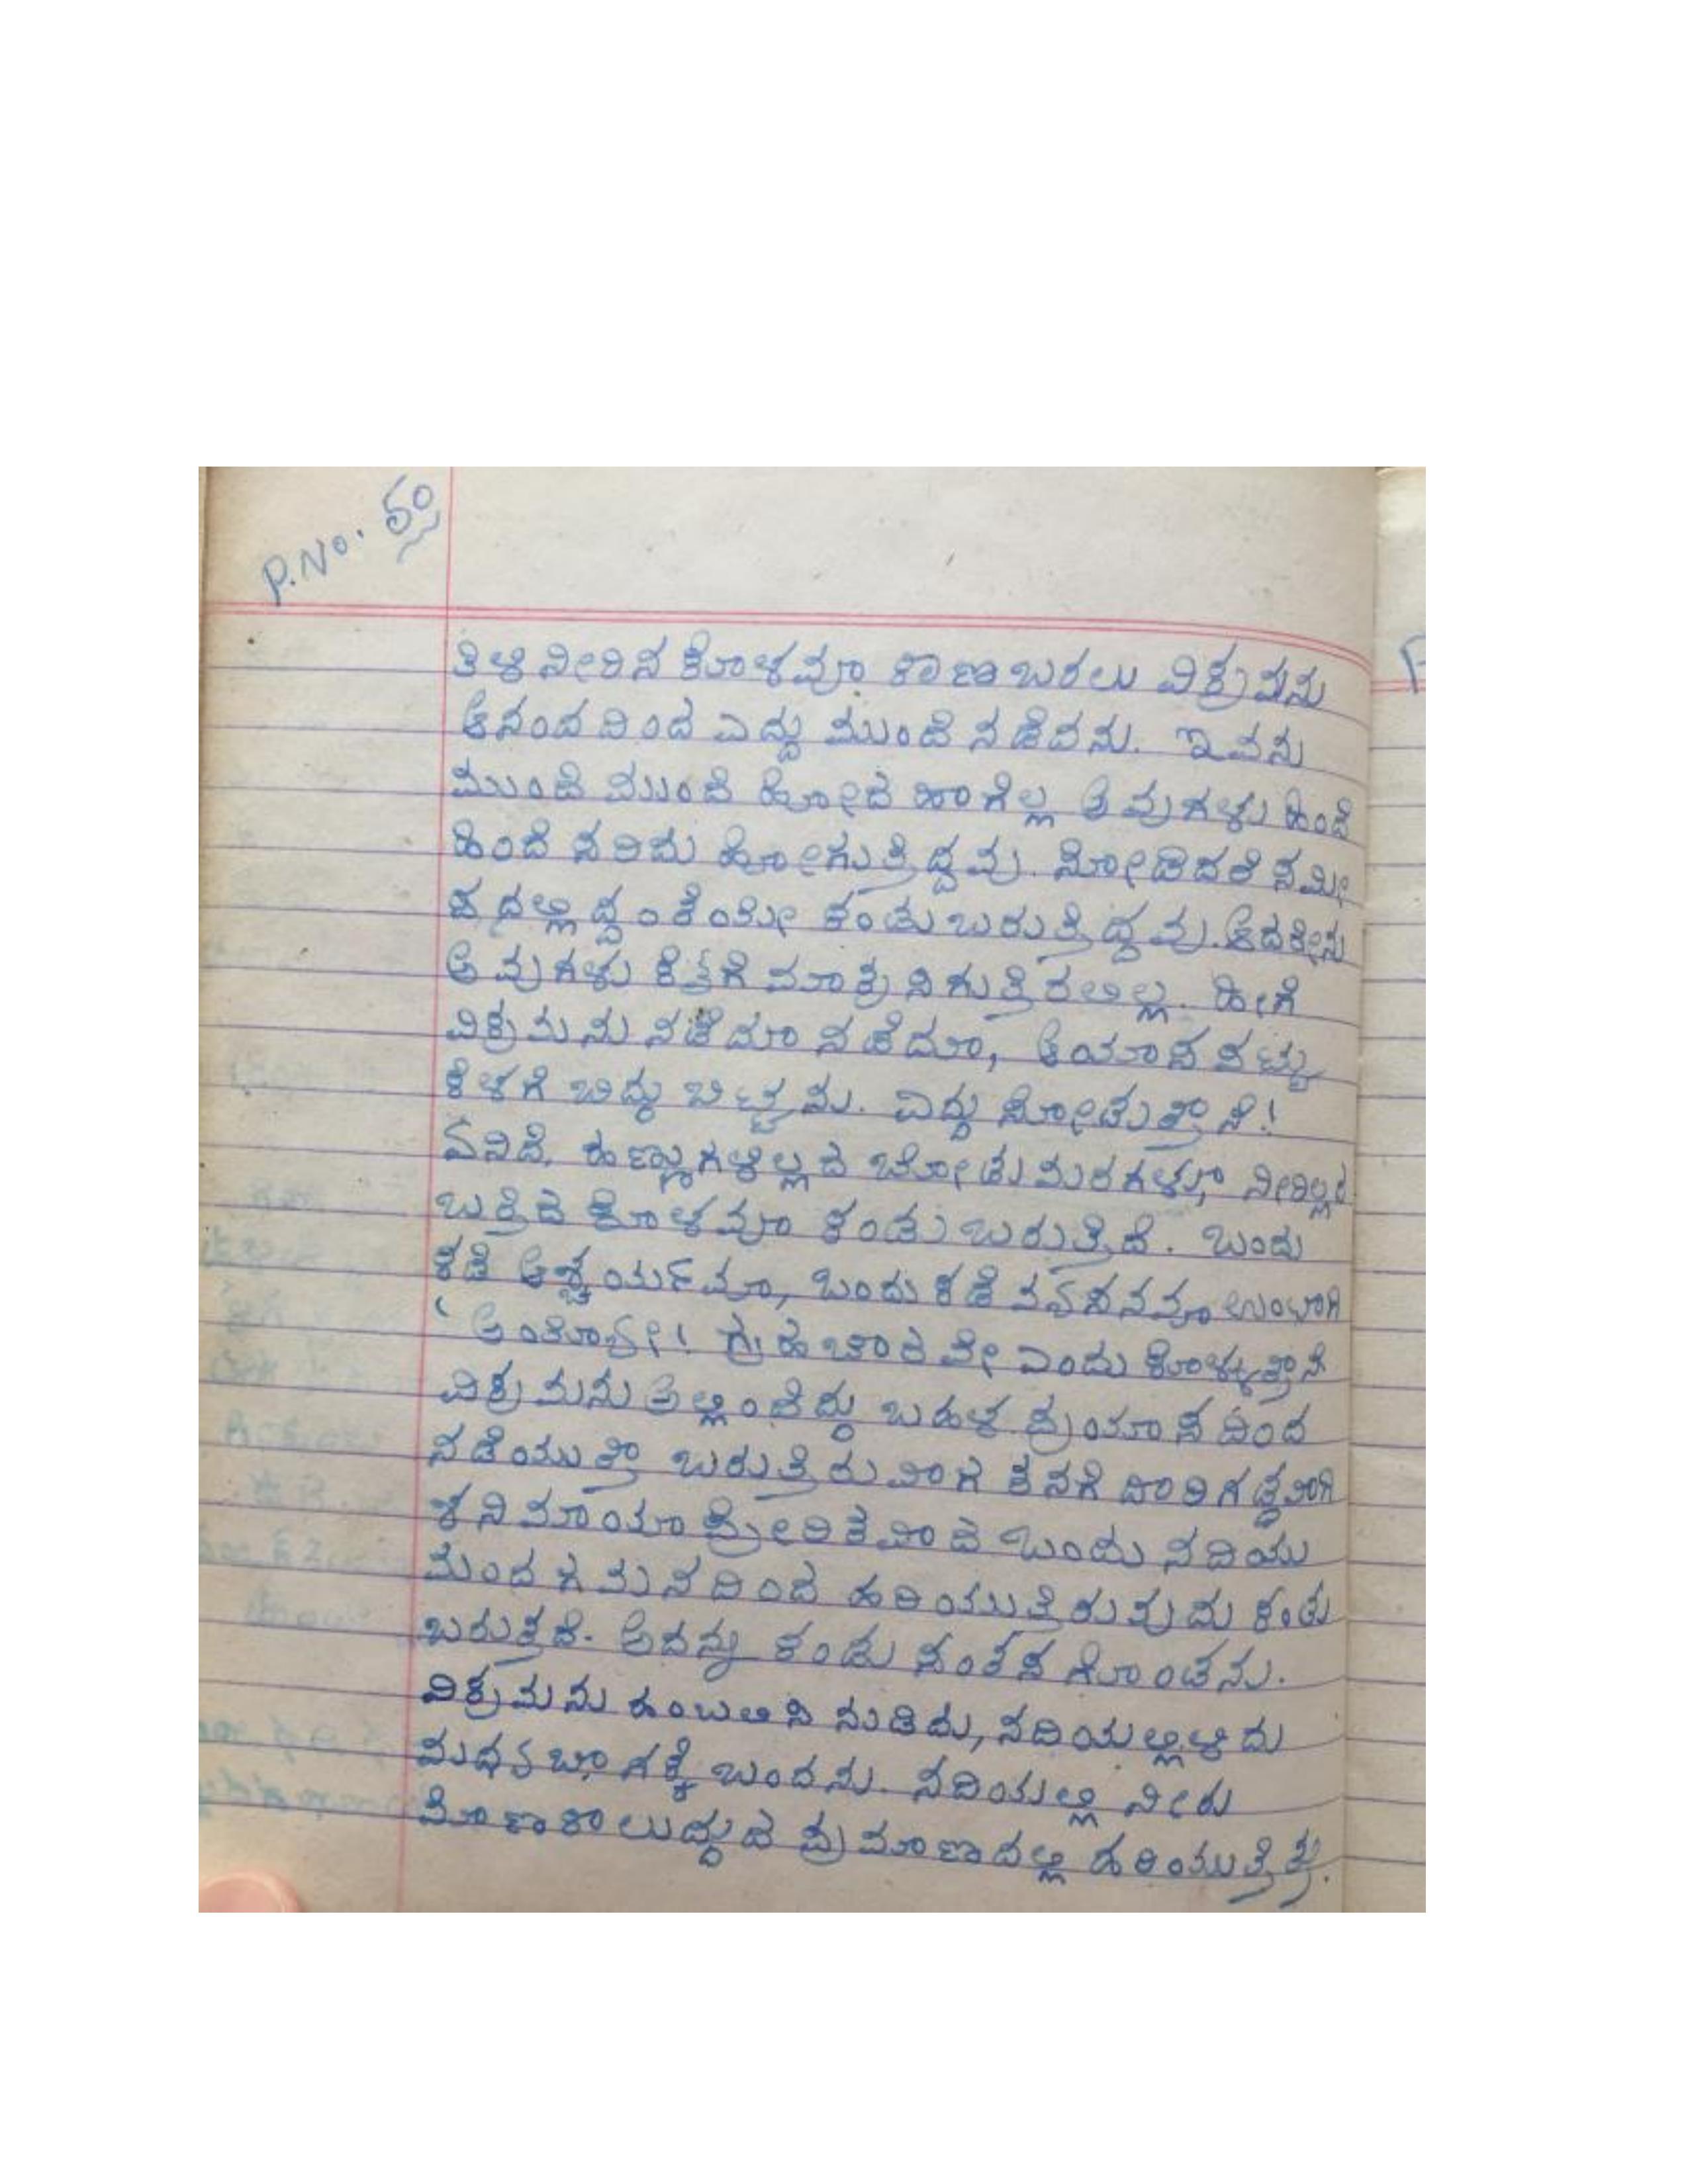 P.No. ೬೦
ತಿಳಿ ನೀರಿನ ಕೊಳವೂ ಕಾಣ ಬರಲು ವಿಕ್ರಮನು
ಆನಂದದಿಂದ ಎದ್ದು ಮುಂದೆ ನಡೆದನು. ಇವನು
ಮುಂದೆ ಮುಂದೆ ಹೋದ ಹಾಗೆಲ್ಲ ಅವುಗಳು ಹಿಂದೆ
ಹಿಂದೆ ಸರಿದು ಹೋಗುತ್ತಿದ್ದವು. ನೋಡಿದರೆ ಸಮೀ
ಪದಲ್ಲಿದ್ದಂತೆಯೇ ಕಂಡು ಬರುತ್ತಿದ್ದವು. ಆದರೇನು
ಅವುಗಳು ಕೈಗೆ ಮಾತ್ರ ಸಿಗುತ್ತಿರಲಿಲ್ಲ. ಹೀಗೆ
ವಿಕ್ರಮನು ನಡೆದೂ ನಡೆದೂ, ಆಯಾಸ ಪಟ್ಟು
ಕೆಳಗೆ ಬಿದ್ದು ಬಿಟ್ಟನು. ಎದ್ದು ನೋಡುತ್ತಾನೆ!
ಏನಿದೆ. ಹಣ್ಣುಗಳಿಲ್ಲದ ಬೋಡು ಮರಗಳೂ, ನೀರಿಲ್ಲದ
ಬತ್ತಿದ ಕೊಳವೂ ಕಂಡು ಬರುತ್ತಿದೆ. ಒಂದು
ಕಡೆ ಆಶ್ಚರ್ಯವೂ, ಒಂದು ಕಡೆ ವ್ಯಸನವೂ ಉಂಟಾಗಿ
'ಅಯ್ಯೋ! ಗ್ರಹಚಾರವೇ ಎಂದು ಕೊಳ್ಳುತ್ತಾನೆ
ವಿಕ್ರಮನು ಅಲ್ಲಿಂದೆದ್ದು ಬಹಳ ಪ್ರಯಾಸದಿಂದ
ನಡೆಯುತ್ತಾ ಬರುತ್ತಿರುವಾಗ ತನಗೆ ದಾರಿಗಡ್ಡವಾಗಿ
ಶನಿ ಮಾಯಾ ಪ್ರೇರಿತವಾದ ಒಂದು ನದಿಯು
ಮಂದ ಗಮನದಿಂದ ಹರಿಯುತ್ತಿರುವುದು ಕಂಡು
ಬರುತ್ತದೆ. ಅದನ್ನು ಕಂಡು ಸಂತಸ ಗೊಂಡನು.
ವಿಕ್ರಮನು ಹಂಬಲಿಸಿ ನುಡಿದು, ನದಿಯಲ್ಲಿಳಿದು
ಮಧ್ಯ ಭಾಗಕ್ಕೆ ಬಂದನು. ನದಿಯಲ್ಲಿ ನೀರು
ಮೊಣಕಾಲುದ್ದುದ ಪ್ರಮಾಣದಲ್ಲಿ ಹರಿಯುತ್ತಿತ್ತು.